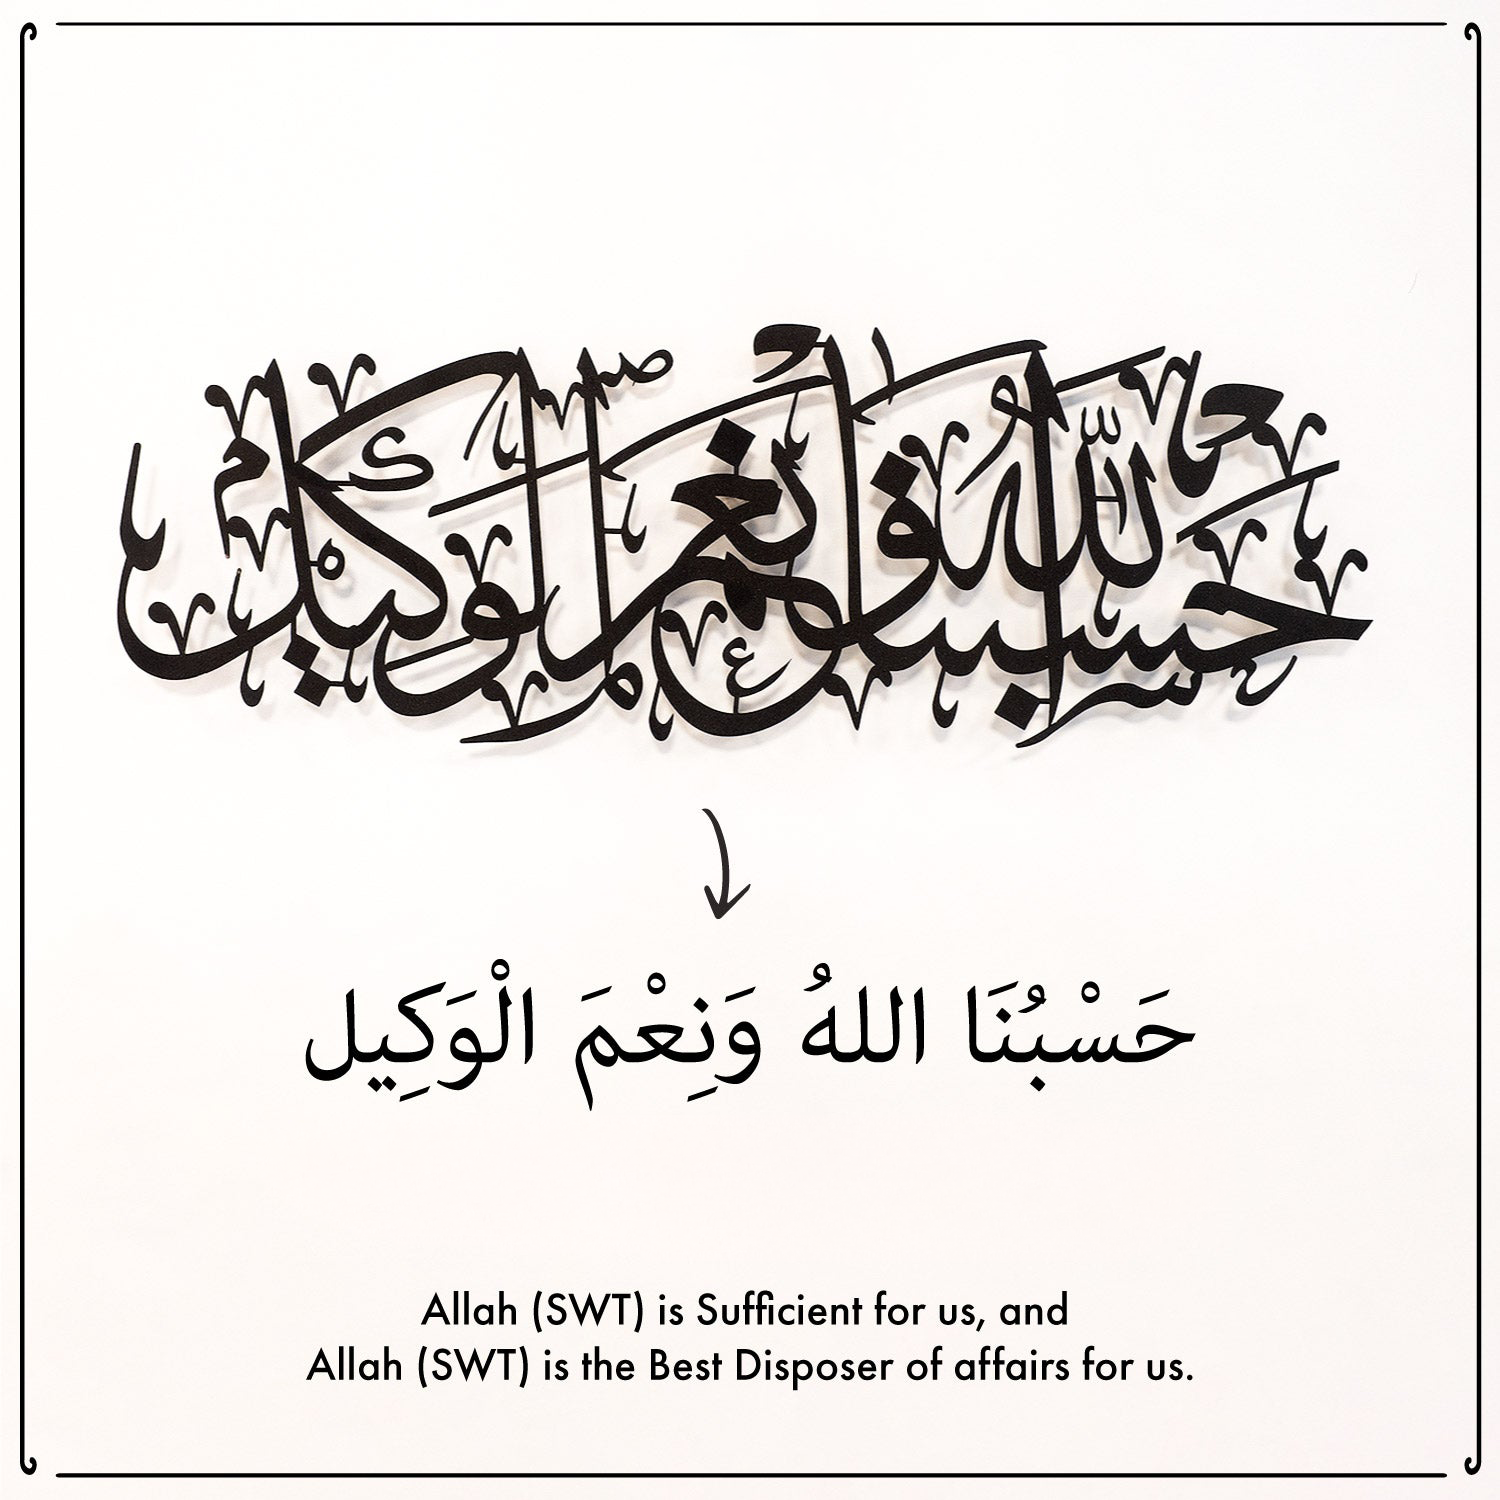 حسبنا الله ونعم الوكيل
حَسْبُنَا اللهُ وَنِعْمَ الْوَكِيل
Allah (SWT) is Sufficient for us, and
Allah (SWT) is the Best Disposer of affairs for us.